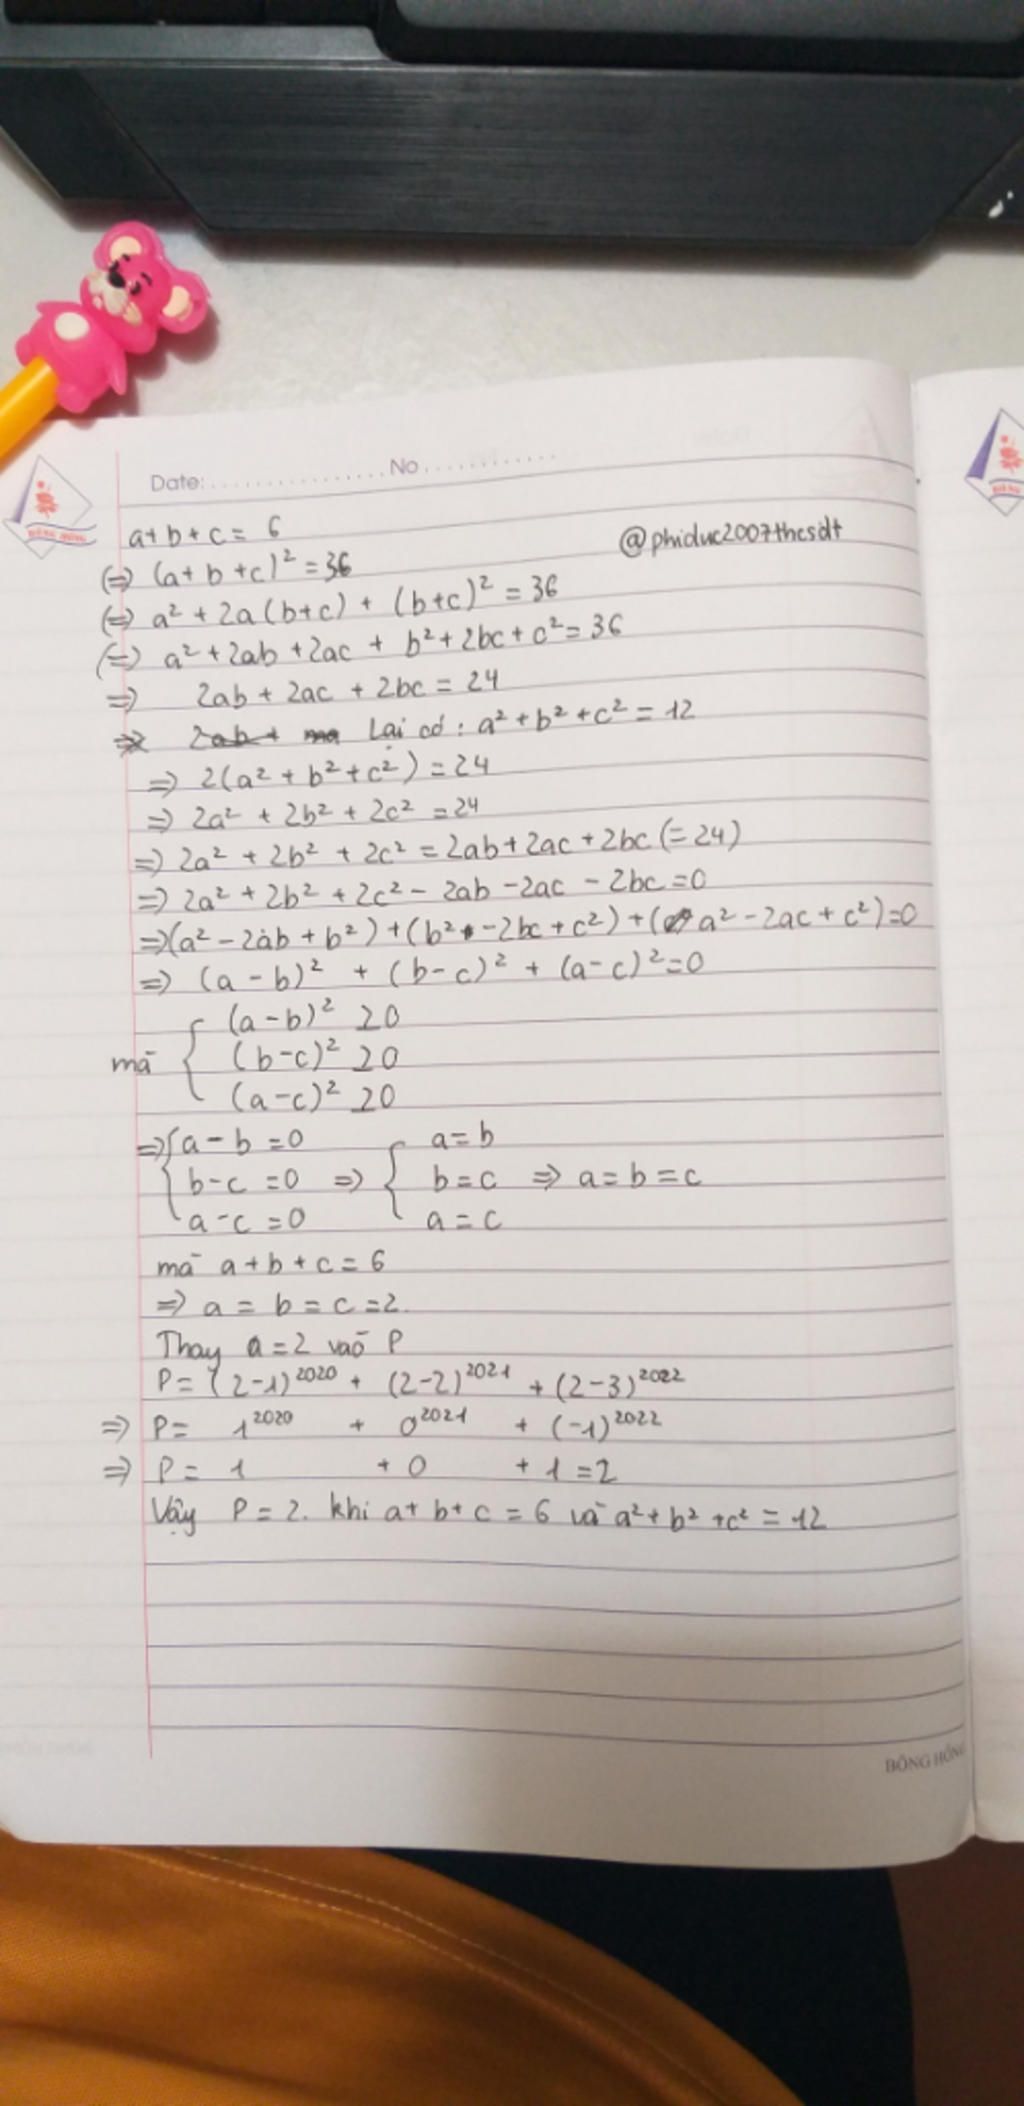 Date:................No............
a+b+c= 6
@phiduc2007thcsdt
(=) (a+b+c)² = 36
(=) a² + 2a(b+c) + (b+c)² = 36
(=) a² + 2ab + 2ac + b² + 2bc + c² = 36
=) 2ab + 2ac + 2bc = 24
Lại có : a² + b² + c² = 12
=) 2(a² + b² + c²) = 24
=) 2a² + 2b² + 2c² = 24
=) 2a² + 2b² + 2c² = 2ab + 2ac + 2bc (= 24)
=) 2a² + 2b² + 2c² - 2ab - 2ac - 2bc = 0
=) (a² - 2ab + b²) + (b² - 2bc + c²) + (a² - 2ac + c²) = 0
=) (a - b)² + (b - c)² + (a - c)² = 0
mà { (a - b)² ≥ 0
(b - c)² ≥ 0
(a - c)² ≥ 0
=) { a - b = 0 { a = b
b - c = 0 =) b = c =) a = b = c
a - c = 0 a = c
mà a + b + c = 6
=) a = b = c = 2.
Thay a = 2 vào P
P = (2-1)²⁰²⁰ + (2-2)²⁰²¹ + (2-3)²⁰²²
=) P = 1²⁰²⁰ + 0²⁰²¹ + (-1)²⁰²²
=) P = 1 + 0 + 1 = 2
Vậy P = 2. khi a + b + c = 6 và a² + b² + c² = 12